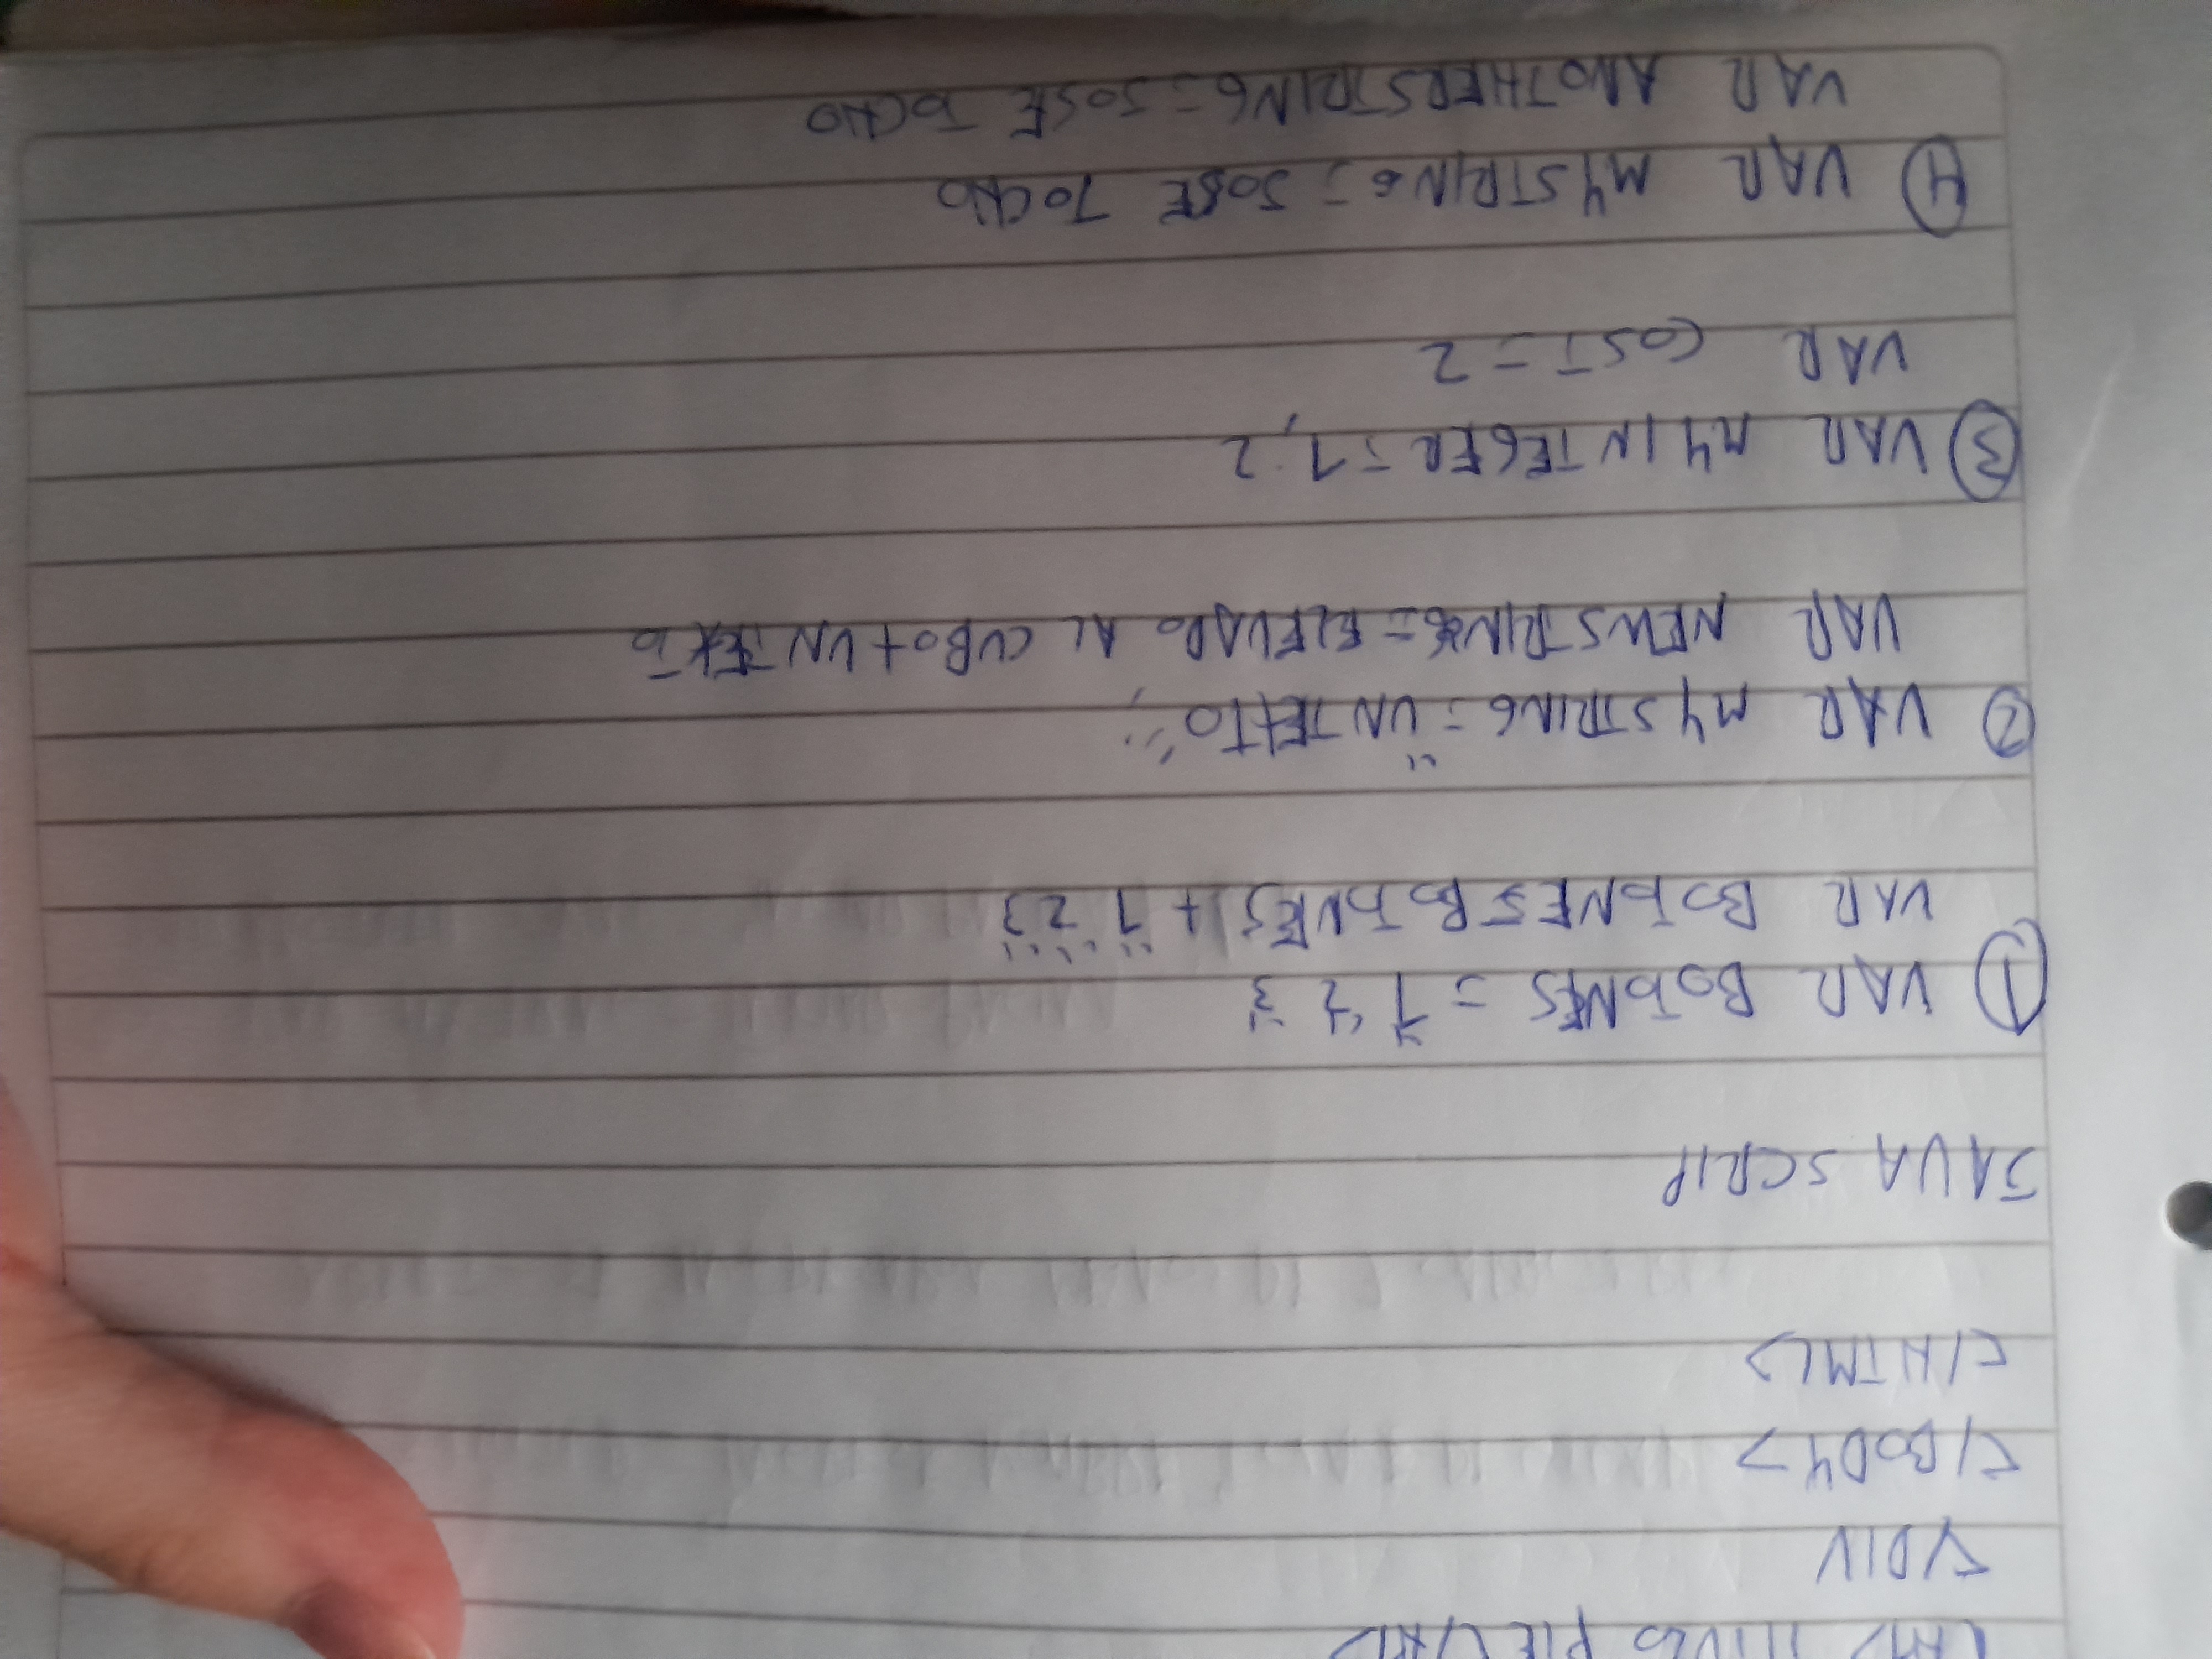 </DIV
</BODY>
</HTML>
JAVA SCRIP
① VAR BOTONES = "1" "2" "3"
VAR BOTONES=BOTONES + "1" "2" "3"
② VAR MYSTRING="UN TEXTO";
VAR NEWSTRING=ELEVADO AL CUBO+UN TEXTO
③ VAR MYINTEGER=1,2
VAR COST=2
④ VAR MYSTRING=JOSE TOCHO
VAR ANOTHERSTRING=JOSE TOCHO